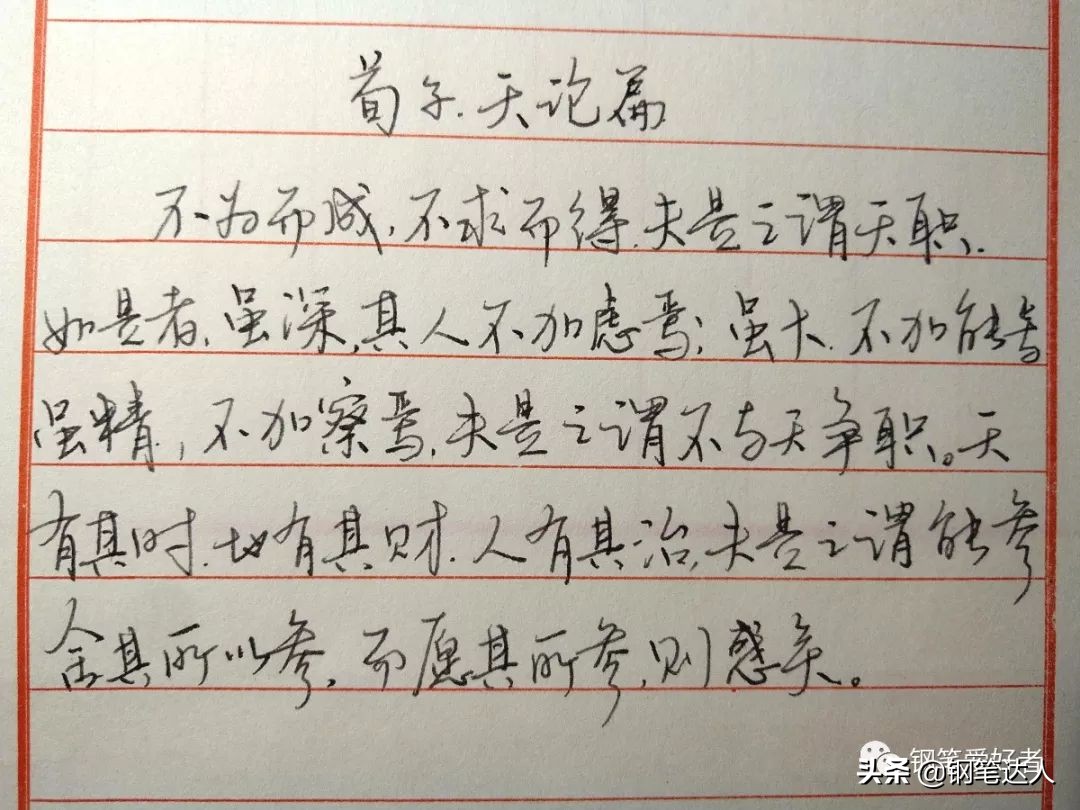 荀子.天论篇
不为而成,不求而得,夫是之谓天职.
如是者,虽深,其人不加虑焉;虽大.不加能焉
虽精,不加察焉,夫是之谓不与天争职。天
有其时.地有其财.人有其治,夫是之谓能参
舍其所以参,而愿其所参,则惑矣。
钢笔爱好者
头条 @钢笔达人